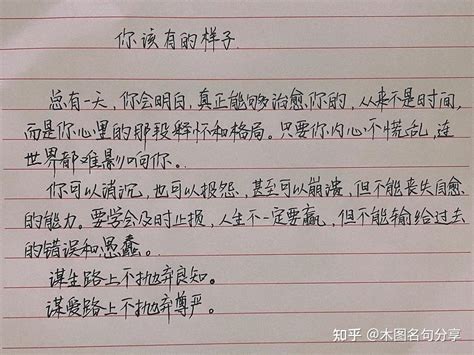 你该有的样子
总有一天，你会明白，真正能够治愈你的，从来不是时间，
而是你心里的那段释怀和格局。只要你内心不慌乱，连
世界都难影响你。
你可以消沉，也可以抱怨，甚至可以崩溃，但不能丧失自愈
的能力。要学会及时止损，人生不一定要赢，但不能输给过去
的错误和愚蠢。
谋生路上不抛弃良知。
谋爱路上不抛弃尊严。
知乎 @木图名句分享